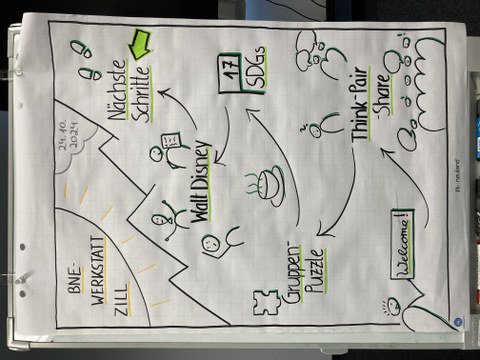 BNE-
WERKSTATT
ZILL
24.10.
2024
Nächste
Schritte
Walt Disney
17
SDGs
Gruppen-
Puzzle
Think-Pair
-Share
Welcome!
neuland